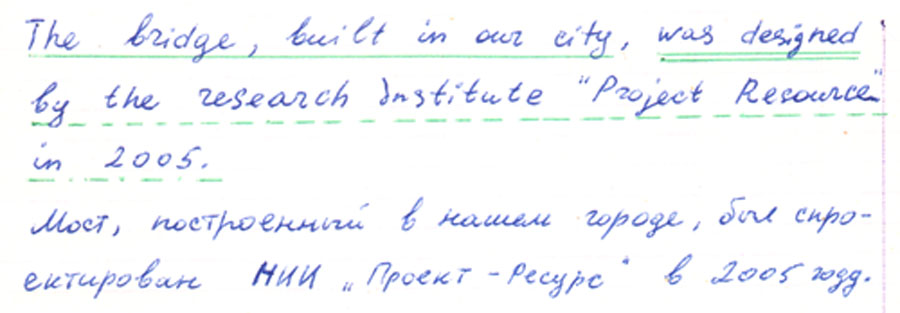 The bridge, built in our city, was designed
by the research Institute "Project Resource"
in 2005.
Мост, построенный в нашем городе, был спро-
ектирован НИИ „Проект-Ресурс" в 2005 году.